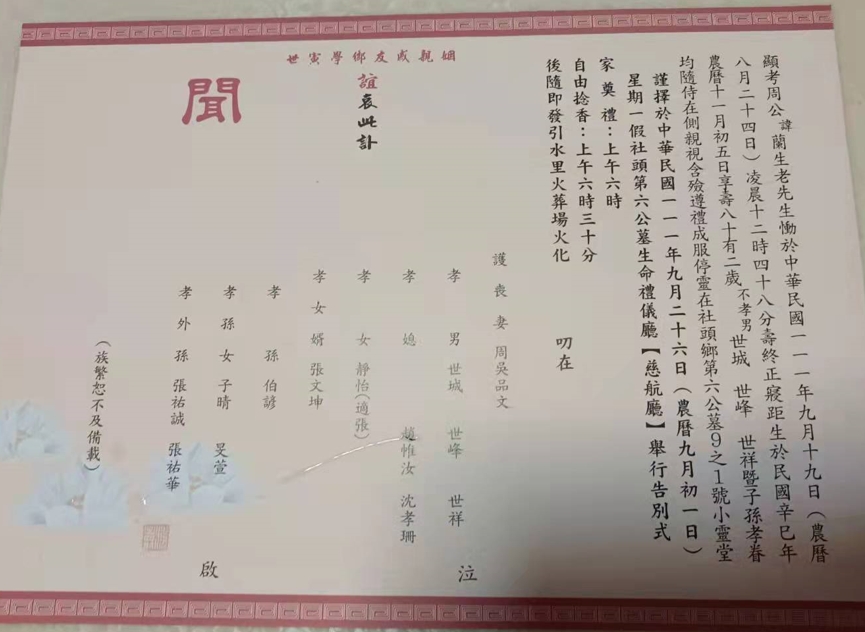 顯考周公諱蘭生老先生慟於中華民國一一一年九月十九日（農曆
八月二十四日）凌晨十二時四十八分壽終正寢距生於民國辛巳年
農曆十一月初五日享壽八十有二歲不孝男世城　世峰　世祥暨子孫孝眷
均隨侍在側親視含殮遵禮成服停靈在社頭鄉第六公墓9之1號小靈堂
謹擇於中華民國一一一年九月二十六日（農曆九月初一日）
星期一假社頭第六公墓生命禮儀廳【慈航廳】舉行告別式
家奠禮：上午六時
自由捻香：上午六時三十分
後隨即發引水里火葬場火化
叨在
姻親戚友鄉學寅世
誼哀此訃
聞
護喪妻　周吳品文
孝男　世城　世峰　世祥
孝媳　趙惟汝　沈孝珊
孝女　靜怡（適張）
孝女婿　張文坤
孝孫　伯諺
孝孫女　子晴　旻萱
孝外孫　張祐誠　張祐華
（族繁恕不及備載）
泣
啟